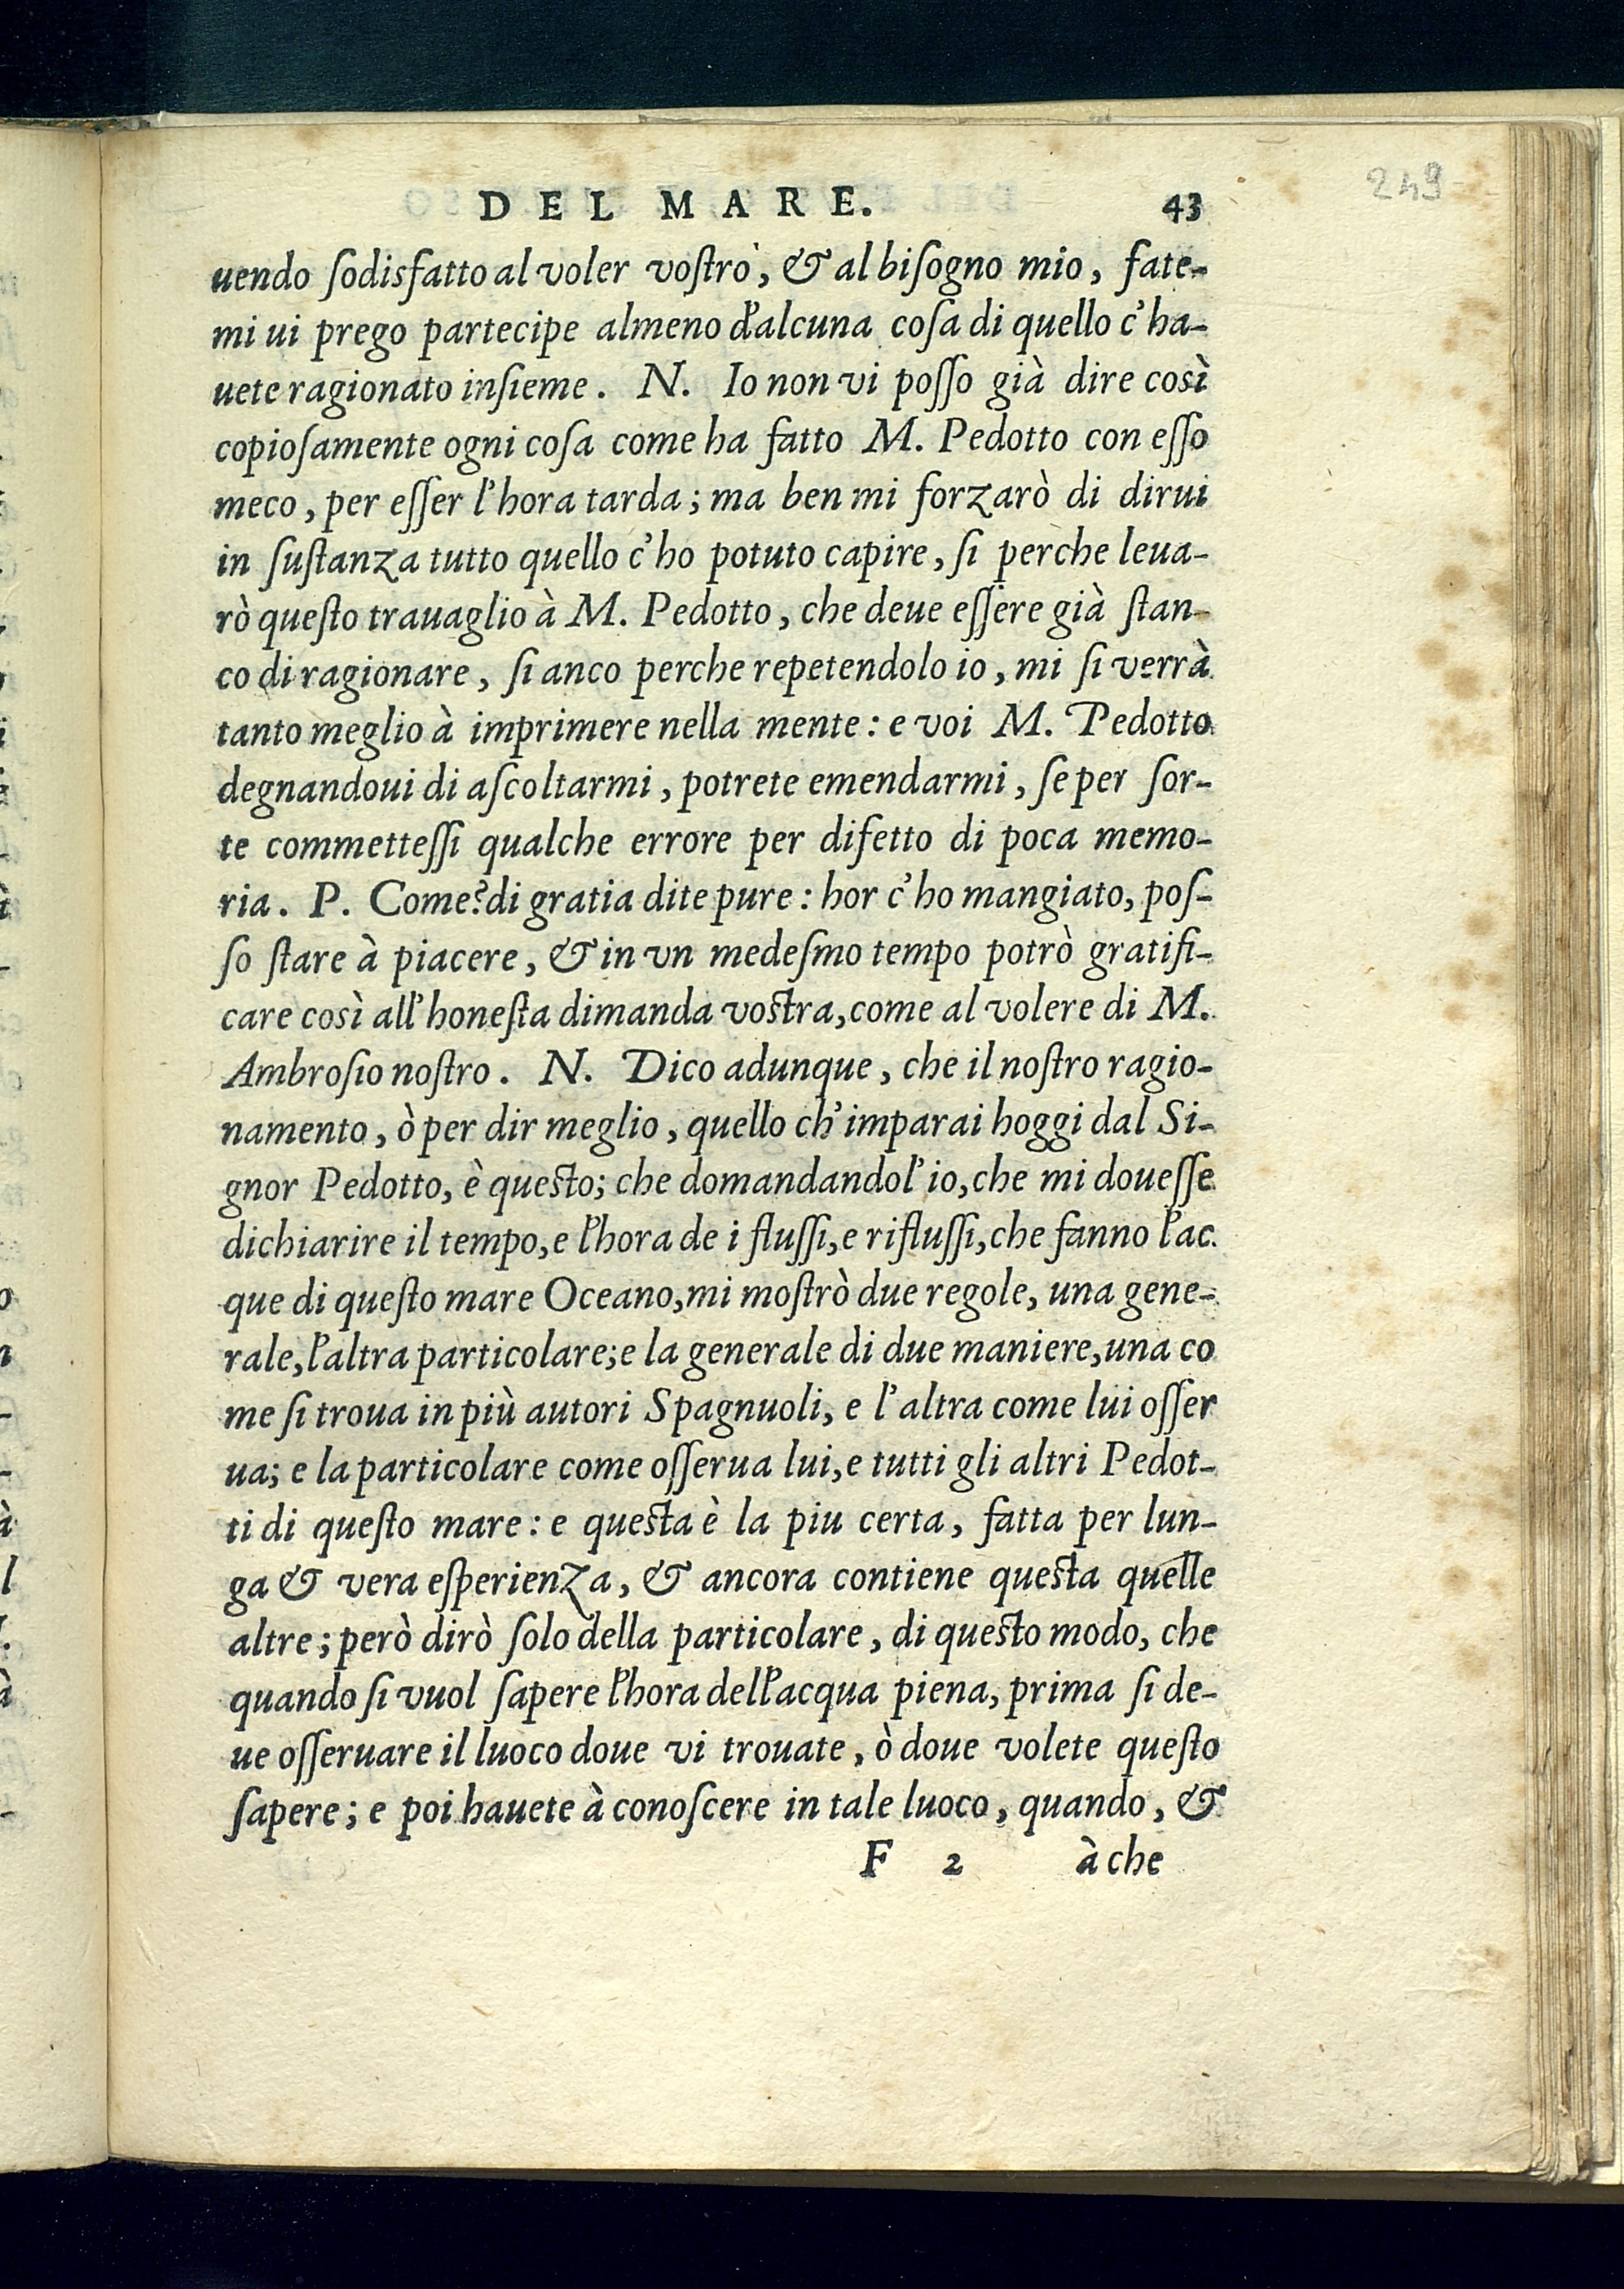 249
DEL MARE. 43
uendo ſodisfatto al voler voſtro, & al biſogno mio, fate-
mi ui prego partecipe almeno d'alcuna coſa di quello c'ha-
uete ragionato inſieme. N. Io non vi poſſo già dire così
copioſamente ogni coſa come ha fatto M. Pedotto con eſſo
meco, per eſſer l'hora tarda; ma ben mi forzarò di dirui
in ſuſtanza tutto quello c'ho potuto capire, ſi perche leua-
rò queſto trauaglio à M. Pedotto, che deue eſſere già ſtan-
co di ragionare, ſi anco perche repetendolo io, mi ſi verrà
tanto meglio à imprimere nella mente: e voi M. Pedotto
degnandoui di aſcoltarmi, potrete emendarmi, ſe per ſor-
te commetteſſi qualche errore per difetto di poca memo-
ria. P. Come? di gratia dite pure: hor c'ho mangiato, poſ-
ſo ſtare à piacere, & in vn medeſmo tempo potrò gratifi-
care così all'honeſta dimanda voſtra, come al volere di M.
Ambroſio noſtro. N. Dico adunque, che il noſtro ragio-
namento, ò per dir meglio, quello ch'imparai hoggi dal Si-
gnor Pedotto, è queſto; che domandandol'io, che mi doueſſe
dichiarire il tempo, e l'hora de i fluſſi, e rifluſſi, che fanno l'ac.
que di queſto mare Oceano, mi moſtrò due regole, una gene-
rale, l'altra particolare; e la generale di due maniere, una co
me ſi troua in più autori Spagnuoli, e l'altra come lui oſſer
ua; e la particolare come oſſerua lui, e tutti gli altri Pedot-
ti di queſto mare: e queſta è la piu certa, fatta per lun-
ga & vera eſperienza, & ancora contiene queſta quelle
altre; però dirò ſolo della particolare, di queſto modo, che
quando ſi vuol ſapere l'hora dell'acqua piena, prima ſi de-
ue oſſeruare il luoco doue vi trouate, ò doue volete queſto
ſapere; e poi hauete à conoſcere in tale luoco, quando, &
F 2 à che